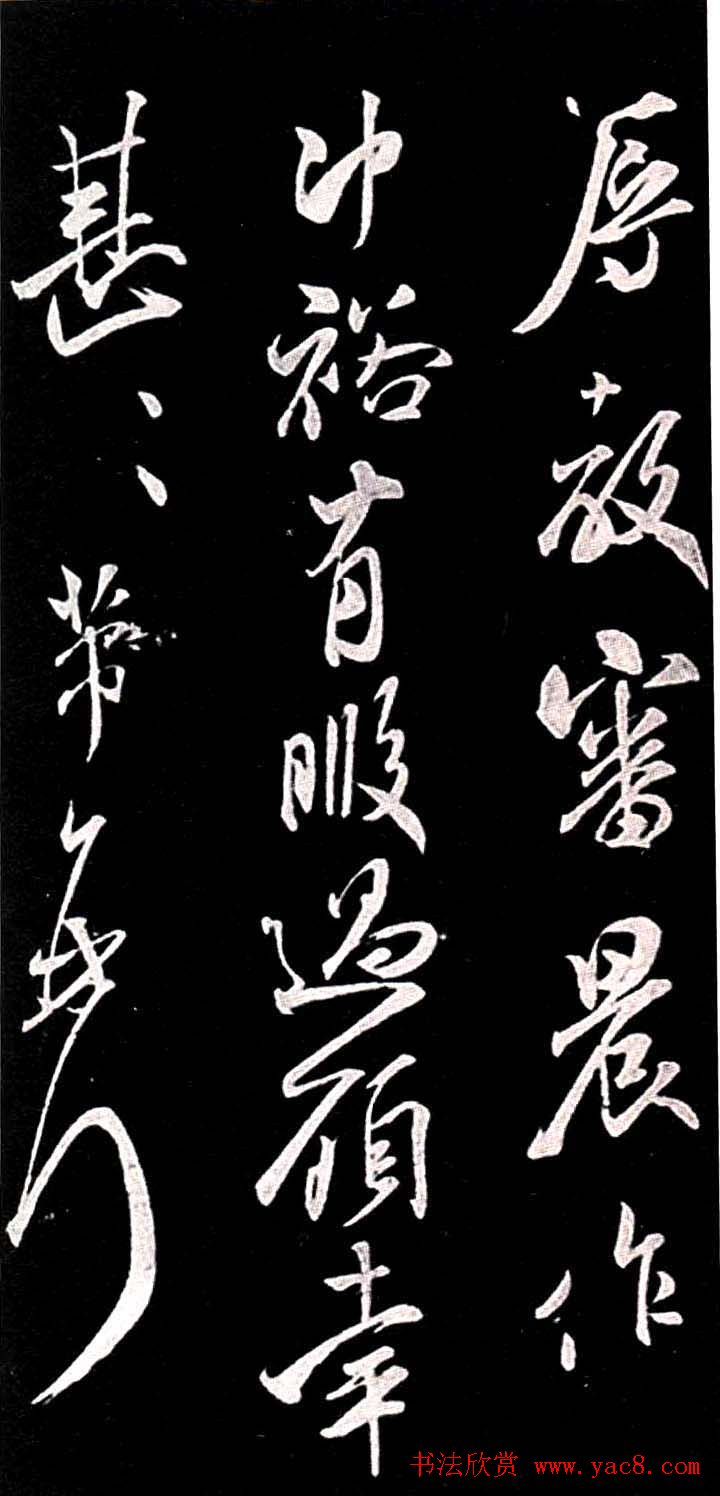 辱教審晨作
沖裕有暇過顧幸
甚〻芾
书法欣赏 www.yac8.com